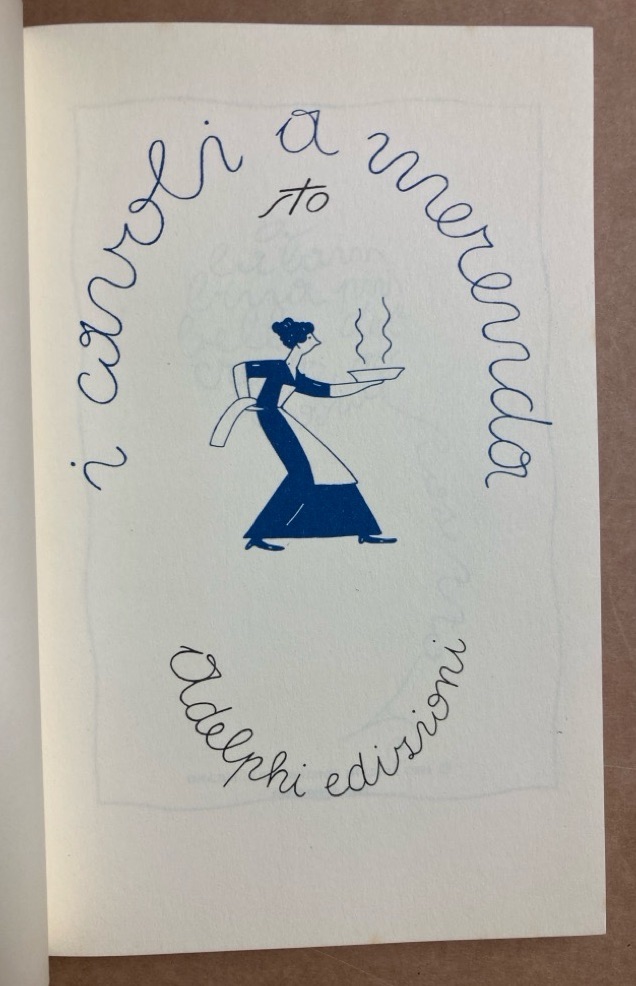 i cavoli a merenda
sto
Adelphi edizioni